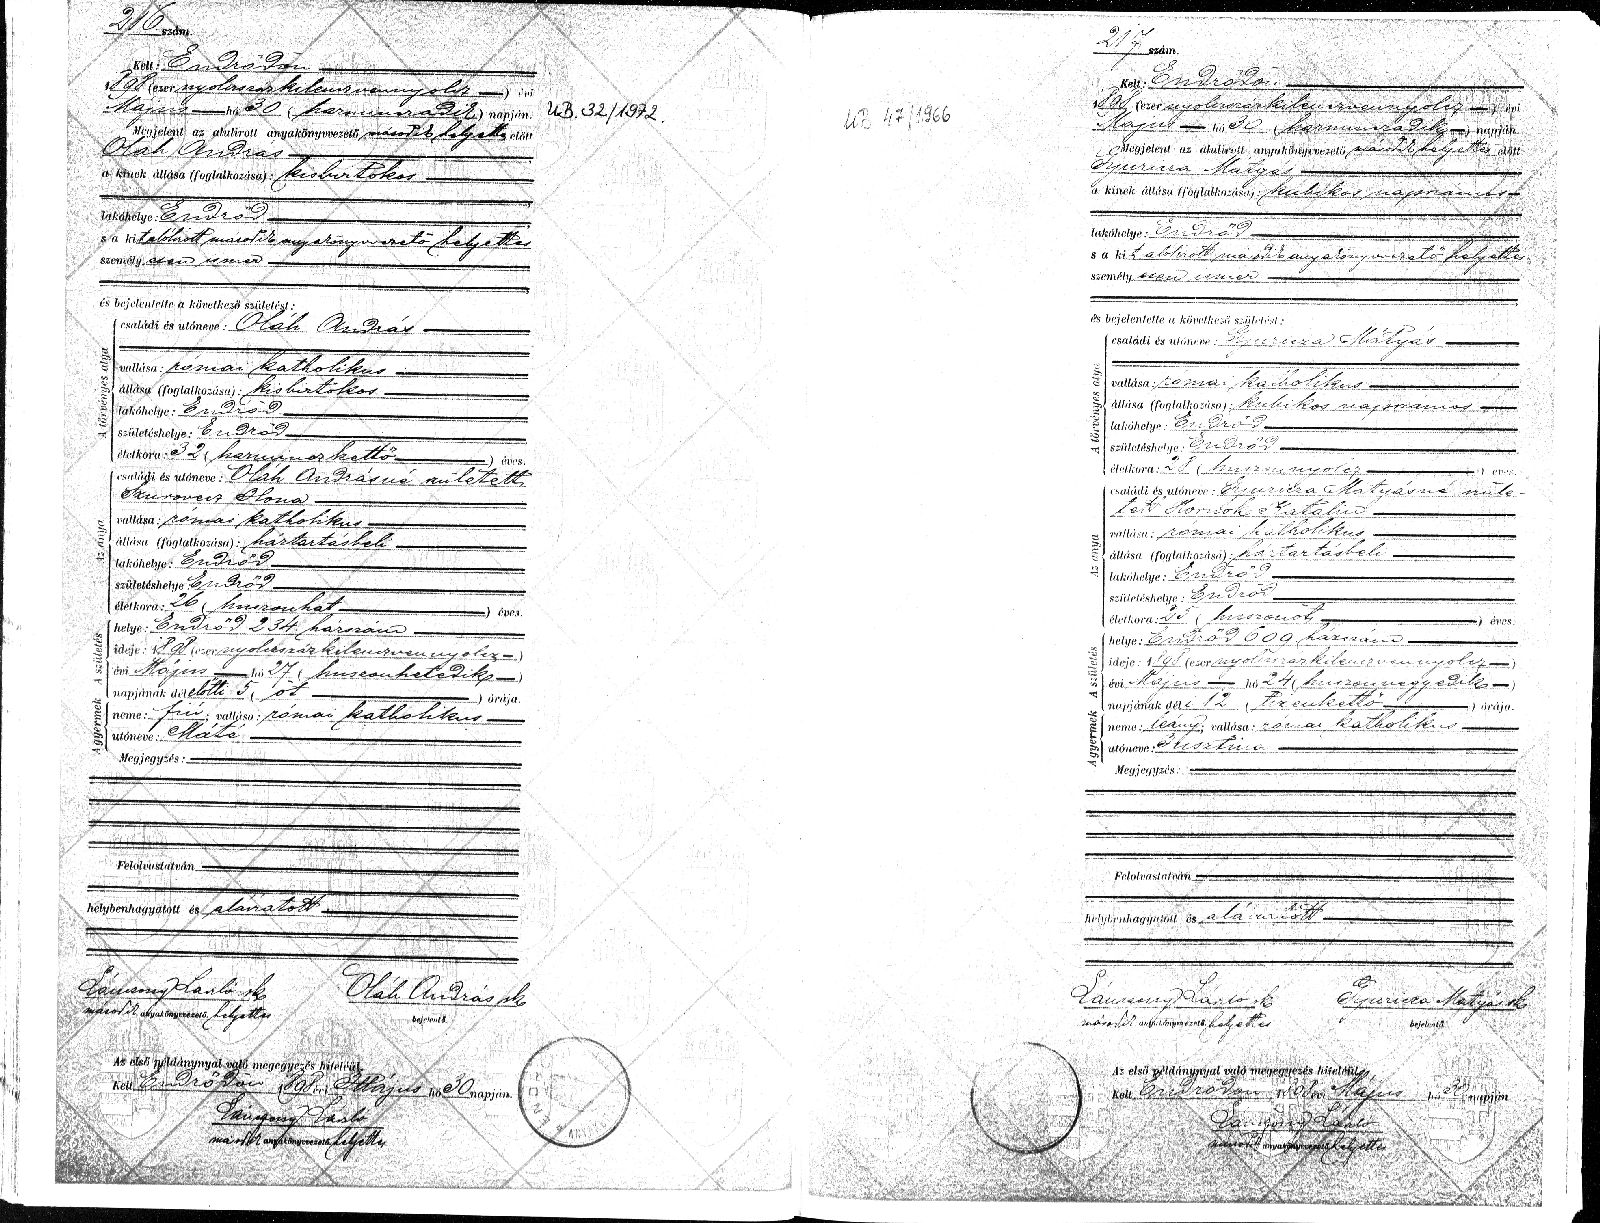 216 szám.
Kelt: Endrődön
1898 (ezer nyolczszázkilenczvennyolcz) évi
Május hó 30 (harminczadik) napján.
UB. 32/1972.
Megjelent az alulirott anyakönyvvezető második helyettes előtt
Oláh András
a kinek állása (foglalkozása): kisbirtokos
lakóhelye: Endrőd
s a kit alólirott második anyakönyvvezető helyettes
személyesen ismer
és bejelentette a következő születést:
A törvényes atya
családi és utóneve: Oláh András
vallása: római katholikus
állása (foglalkozása): kisbirtokos
lakóhelye: Endrőd
születéshelye: Endrőd
életkora: 32 (harminczkettő) éves.
Az anya
családi és utóneve: Oláh Andrásné született
Szurovecz Ilona
vallása: római katholikus
állása (foglalkozása): háztartásbeli
lakóhelye: Endrőd
születéshelye Endrőd
életkora: 26 (huszonhat) éves.
A születés
helye: Endrőd 234. házszám
ideje: 1898 (ezer nyolczszázkilenczvennyolcz)
évi Május hó 27 (huszonhetedik)
napjának délelőtti 5 (öt) órája.
A gyermek
neme: fiú; vallása: római katholikus
utóneve: Máté
Megjegyzés:
Felolvastatván,
helybenhagyatott és aláiratott
Lánczony László sk
második anyakönyvvezető helyettes
Oláh András sk
bejelentő.
Az első példánynyal való megegyezés hiteléül.
Kelt Endrődön 1898 évi Május hó 30 napján.
Lánczony László
második anyakönyvvezető helyettes
217 szám.
Kelt: Endrődön
1898 (ezer nyolczszázkilenczvennyolcz) évi
Május hó 30 (harminczadik) napján
UB 47/1966
Megjelent az alulirott anyakönyvvezető második helyettes előtt
Gyuricza Mátyás
a kinek állása (foglalkozása): kubikos napszámos
lakóhelye: Endrőd
s a kit alólirott második anyakönyvvezető helyettes
személyesen ismer
és bejelentette a következő születést:
A törvényes atya
családi és utóneve: Gyuricza Mátyás
vallása: római katholikus
állása (foglalkozása): kubikos napszámos
lakóhelye: Endrőd
születéshelye: Endrőd
életkora: 28 (huszonnyolcz) éves.
Az anya
családi és utóneve: Gyuricza Mátyásné szüle-
tett Katalin
vallása: római katholikus
állása (foglalkozása): háztartásbeli
lakóhelye: Endrőd
születéshelye: Endrőd
életkora: 25 (huszonöt) éves.
A születés
helye: Endrőd 609 házszám
ideje: 1898 (ezer nyolczszázkilenczvennyolcz)
évi Május hó 24 (huszonnegyedik)
napjának déli 12 (tizenkettő) órája.
A gyermek
neme: leány; vallása: római katholikus
utóneve: Jusztina
Megjegyzés:
Felolvastatván
helybenhagyatott és aláiratott
Lánczony László sk
második anyakönyvvezető helyettes
Gyuricza Mátyás sk
bejelentő.
Az első példánynyal való megegyezés hiteléül.
Kelt Endrődön 1898 évi Május hó 30 napján
Lánczony László
második anyakönyvvezető helyettes